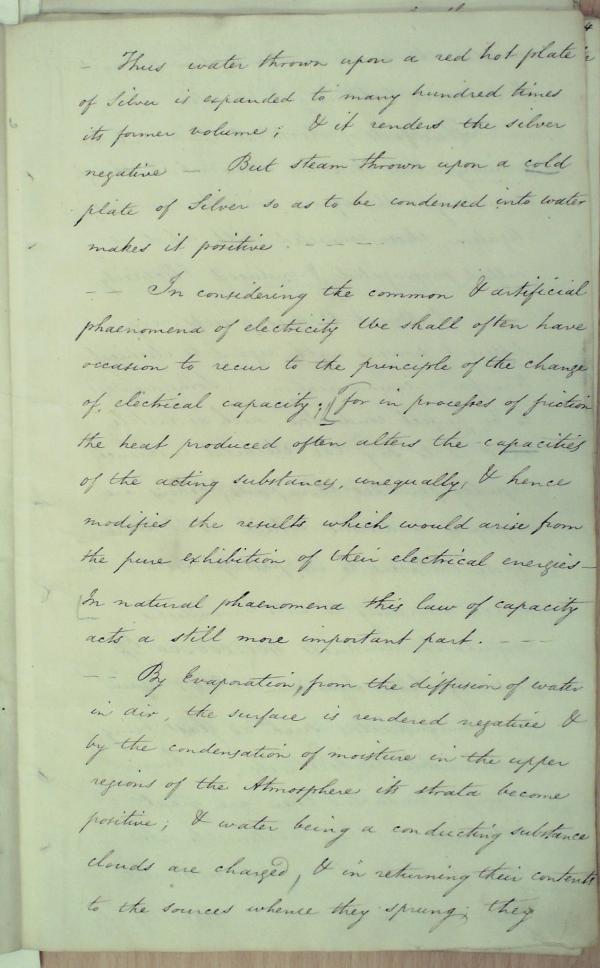 – Thus water thrown upon a red hot plate
of Silver is expanded to many hundred times
its former volume; & it renders the silver
negative – But steam thrown upon a cold
plate of Silver so as to be condensed into water
makes it positive. – – – – –
– – In considering the common & artificial
phaenomena of electricity We shall often have
occasion to recur to the principle of the change
of, electrical capacity; [For in processes of friction
the heat produced often alters the capacities
of the acting substances, unequally, & hence
modifies the results which would arise from
the pure exhibition of their electrical energies –
In natural phaenomena this law of capacity
acts a still more important part. – – –
– – By Evaporation, from the diffusion of water
in air, the surface is rendered negative &
by the condensation of moisture in the upper
regions of the Atmosphere its strata become
positive; & water being a conducting substance
clouds are charged, & in returning their contents
to the sources whence they sprung; they